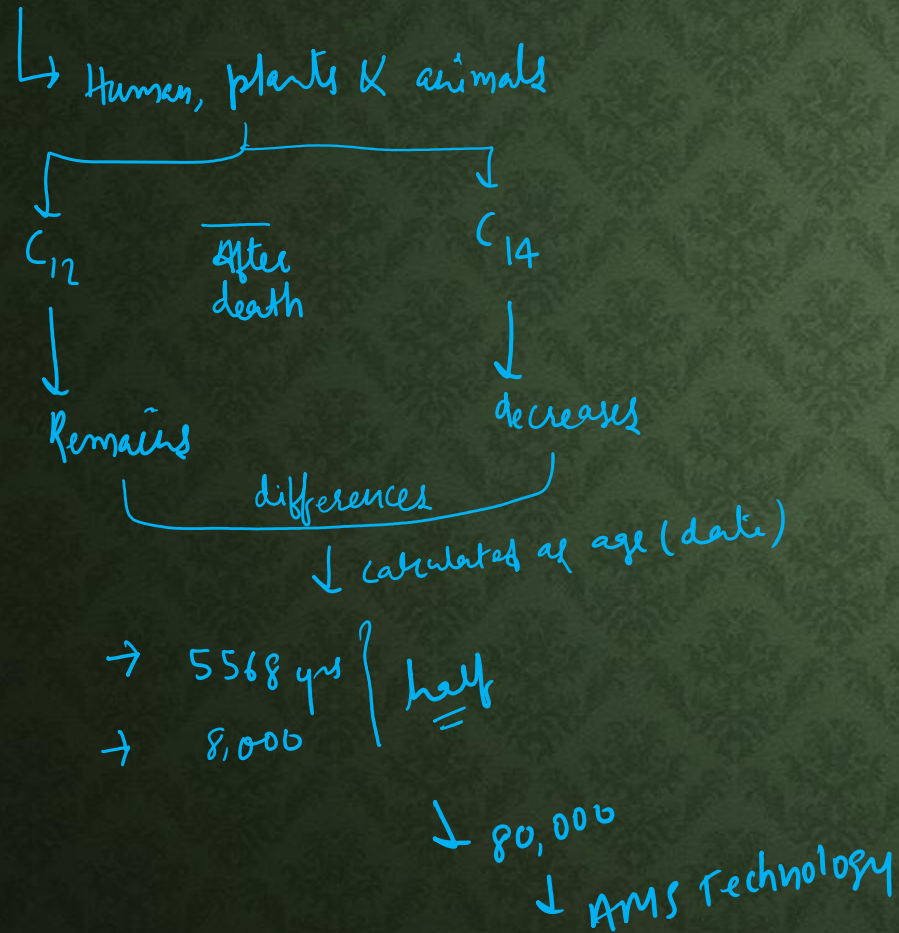 ↳ Human, plants & animals
C12
After
death
C14
Remains
decreases
differences
↓ calculated as age (date)
→ 5568 yrs
→ 8,000
half
↓ 80,000
↓ AMS Technology